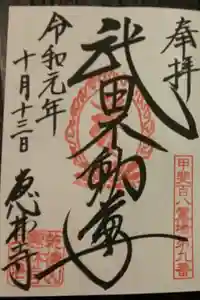 奉拝
甲斐百八霊場第九番
武田不動尊
令和元年
十月十三日
恵林寺